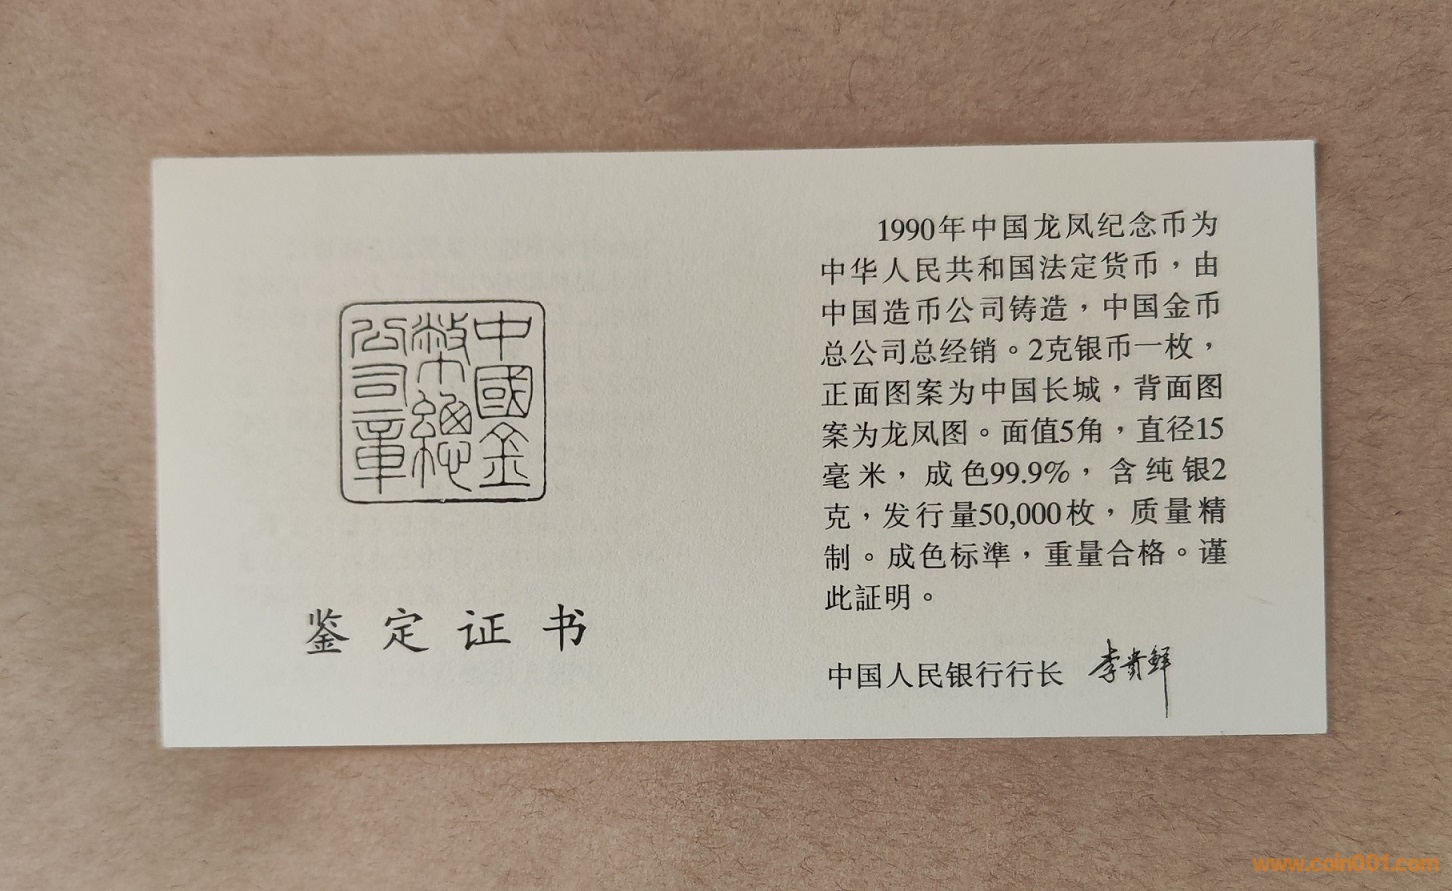 中國金
幣總
公司章
鉴定证书
1990年中国龙凤纪念币为
中华人民共和国法定货币，由
中国造币公司铸造，中国金币
总公司总经销。2克银币一枚，
正面图案为中国长城，背面图
案为龙凤图。面值5角，直径15
毫米，成色99.9%，含纯银2
克，发行量50,000枚，质量精
制。成色标準，重量合格。谨
此証明。
中国人民银行行长 李贵鲜
www.coin001.com